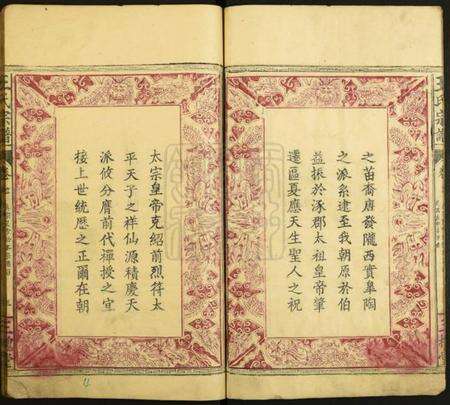 之苗裔唐發隴西實臯陶
之派系逮至我朝原於伯
益振於涿郡太祖皇帝肇
遷區夏應天生聖人之祝
太宗皇帝克紹前烈符太
平天子之祥仙源積慶天
派攸分膺前代禪授之宜
接上世統歷之正爾在朝